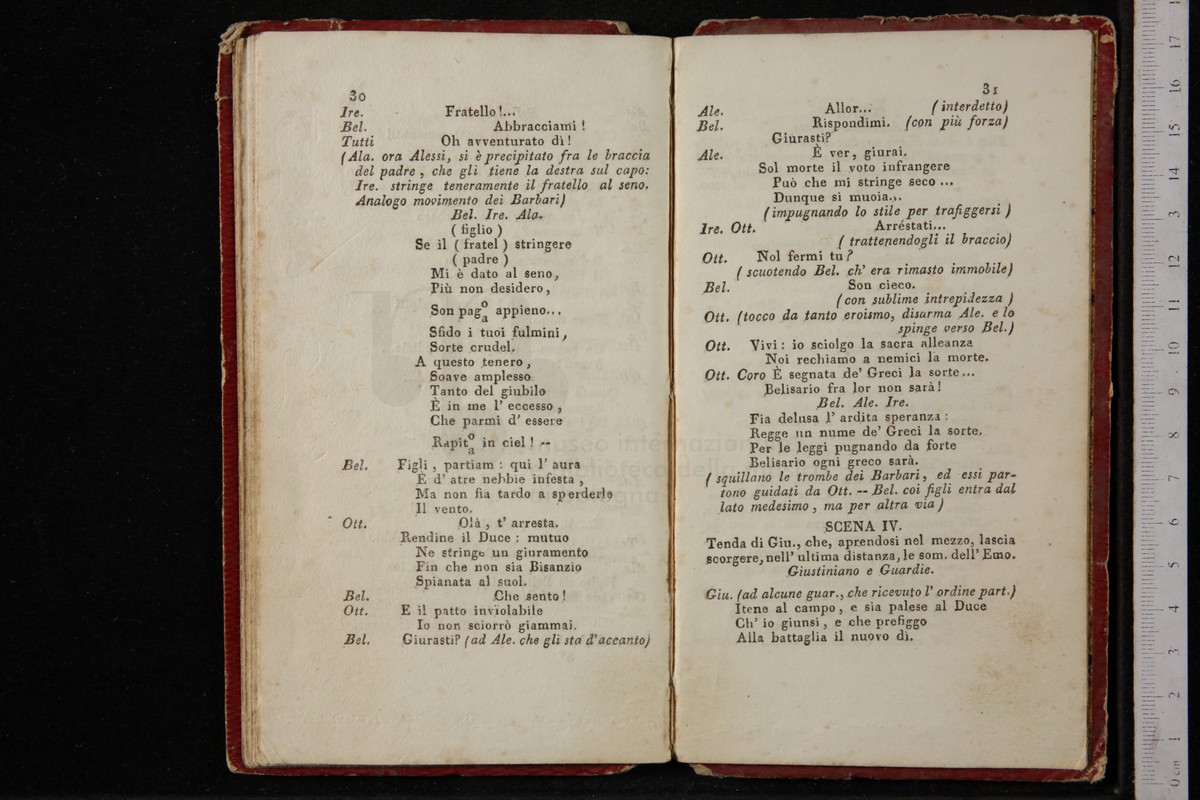 30
Ire. Fratello!...
Bel. Abbracciami !
Tutti Oh avventurato dì!
(Ala. ora Alessi, si è precipitato fra le braccia
del padre , che gli tiene la destra sul capo:
Ire. stringe teneramente il fratello al seno.
Analogo movimento dei Barbari)
Bel. Ire. Ala.
( figlio )
Se il ( fratel ) stringere
( padre )
Mi è dato al seno,
Più non desidero,
Son pag o/a appieno...
Sfido i tuoi fulmini,
Sorte crudel.
A questo tenero,
Soave amplesso
Tanto del giubilo
È in me l' eccesso ,
Che parmi d' essere
Rapit o/a in ciel ! --
Bel. Figli , partiam : qui l' aura
È d' atre nebbie infesta ,
Ma non fia tardo a sperderle
Il vento.
Ott. Olà , t' arresta.
Rendine il Duce : mutuo
Ne stringe un giuramento
Fin che non sia Bisanzio
Spianata al suol.
Bel. Che sento !
Ott. E il patto inviolabile
Io non sciorrò giammai.
Bel. Giurasti? (ad Ale. che gli sta d'accanto)
31
Ale. Allor... ( interdetto)
Bel. Rispondimi. (con più forza)
Giurasti?
Ale. È ver, giurai.
Sol morte il voto infrangere
Può che mi stringe seco ...
Dunque si muoia...
(impugnando lo stile per trafiggersi )
Ire. Ott. Arréstati...
( trattenendogli il braccio)
Ott. Nol fermi tu?
( scuotendo Bel. ch' era rimasto immobile)
Bel. Son cieco.
(con sublime intrepidezza )
Ott. (tocco da tanto eroismo, disarma Ale. e lo
spinge verso Bel.)
Ott. Vivi : io sciolgo la sacra alleanza
Noi rechiamo a nemici la morte.
Ott. Coro È segnata de' Greci la sorte...
Belisario fra lor non sarà!
Bel. Ale. Ire.
Fia delusa l' ardita speranza :
Regge un nume de' Greci la sorte.
Per le leggi pugnando da forte
Belisario ogni greco sarà.
( squillano le trombe dei Barbari, ed essi par-
tono guidati da Ott. -- Bel. coi figli entra dal
lato medesimo , ma per altra via )
SCENA IV.
Tenda di Giu., che, aprendosi nel mezzo, lascia
scorgere, nell' ultima distanza, le som. dell' Emo.
Giustiniano e Guardie.
Giu. (ad alcune guar., che ricevuto l' ordine part.)
Itene al campo , e sia palese al Duce
Ch' io giunsi , e che prefiggo
Alla battaglia il nuovo dì.